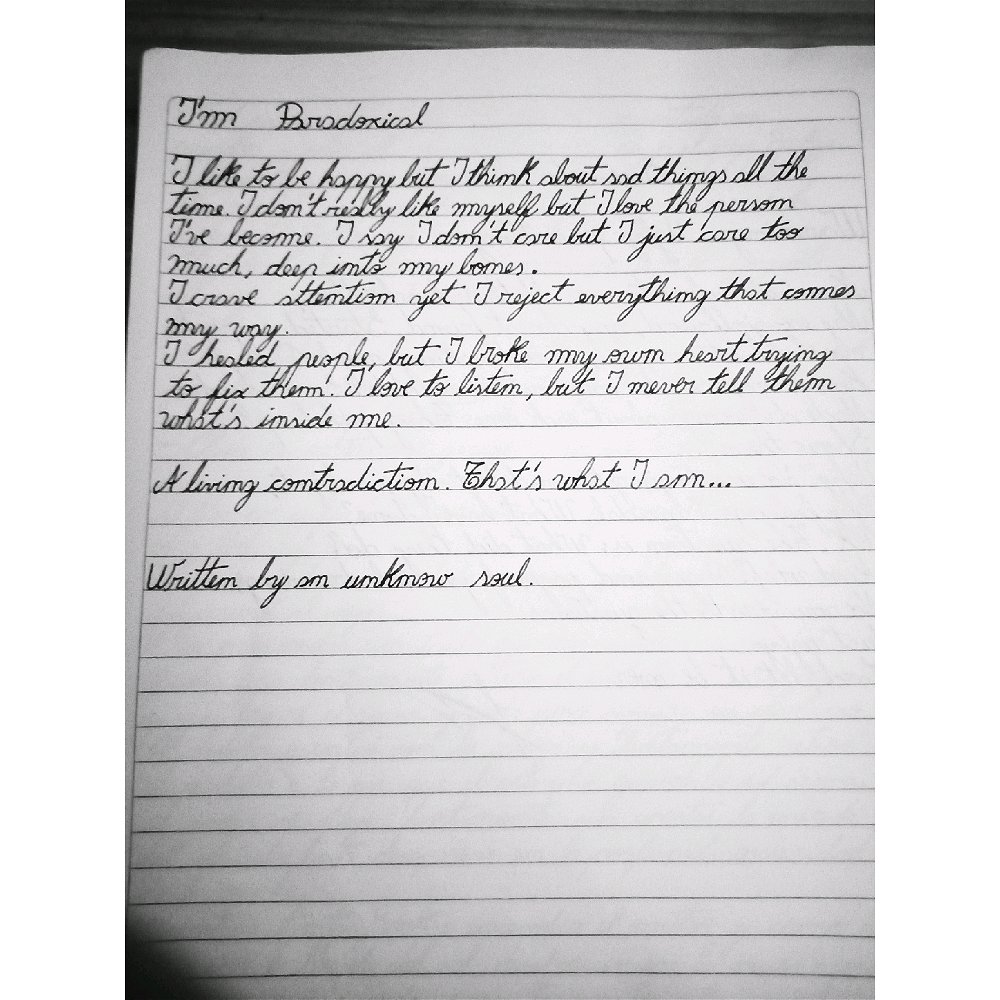 I'm Paradoxical
I like to be happy but I think about sad things all the
time. I don't really like myself but I love the person
I've become. I say I don't care but I just care too
much, deep into my bones.
I crave attention yet I reject everything that comes
my way.
I healed people, but I broke my own heart trying
to fix them. I love to listen, but I never tell them
what's inside me.
A living contradiction. That's what I am...
Written by an unknow soul.